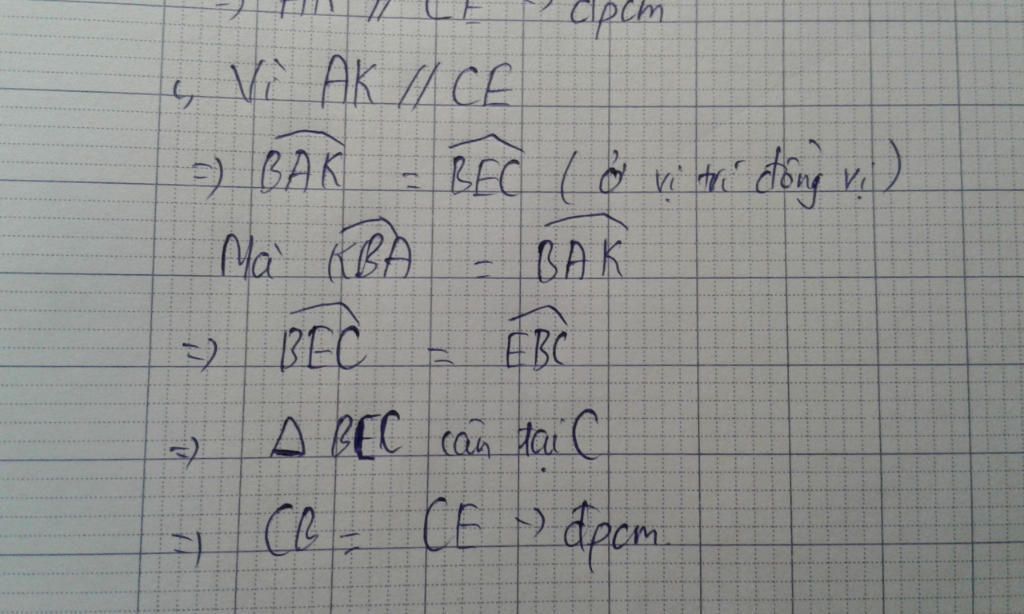 =) AK // CE -> đpcm
c, Vì AK // CE
=) BAK = BEC ( ở vị trí đồng vị )
Mà KBA = BAK
=) BEC = EBC
=) Δ BEC cân tại C
=) CB = CE -> đpcm.